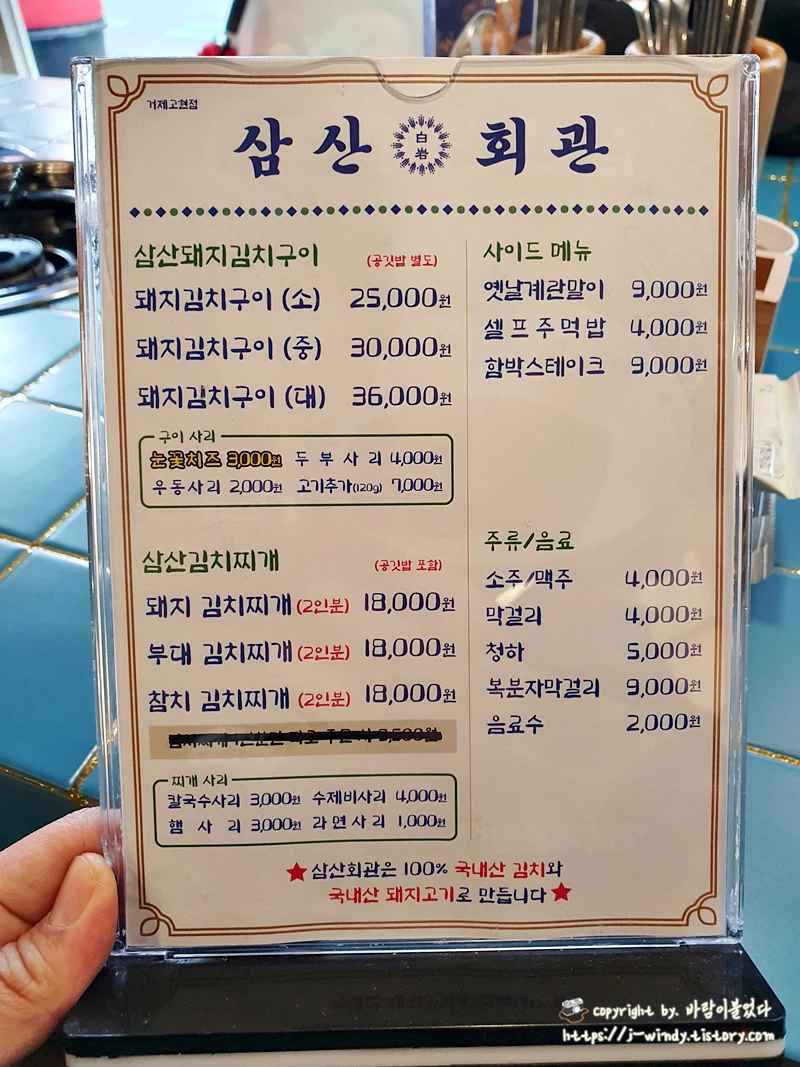 거제고현점
삼산 白岩 회관
삼산돼지김치구이 (공깃밥 별도)
돼지김치구이 (소) 25,000원
돼지김치구이 (중) 30,000원
돼지김치구이 (대) 36,000원
구이 사리
눈꽃치즈 3,000원 두부사리 4,000원
우동사리 2,000원 고기추가(120g) 7,000원
삼산김치찌개 (공깃밥 포함)
돼지 김치찌개 (2인분) 18,000원
부대 김치찌개 (2인분) 18,000원
참치 김치찌개 (2인분) 18,000원
찌개 사리
칼국수사리 3,000원 수제비사리 4,000원
햄사리 3,000원 라면사리 1,000원
사이드 메뉴
옛날계란말이 9,000원
셀프주먹밥 4,000원
함박스테이크 9,000원
주류/음료
소주/맥주 4,000원
막걸리 4,000원
청하 5,000원
복분자막걸리 9,000원
음료수 2,000원
★삼산회관은 100% 국내산 김치와
국내산 돼지고기로 만듭니다★
copyright by. 바람이불었다
https://j-windy.tistory.com